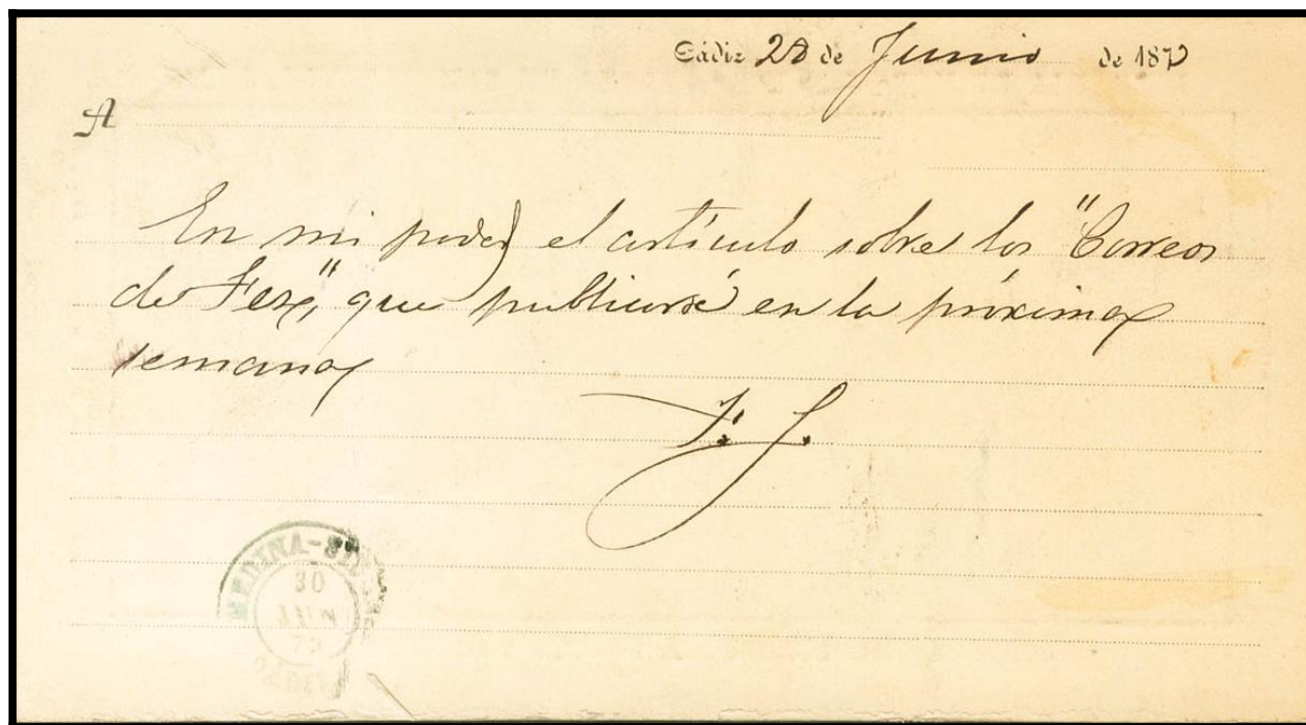 Cádiz 28 de Junio de 187
A
En mi poder el artículo sobre los "Correos
de Fez," que publicaré en la próxima
semana
MEDINA-SIDONIA
30
JUN